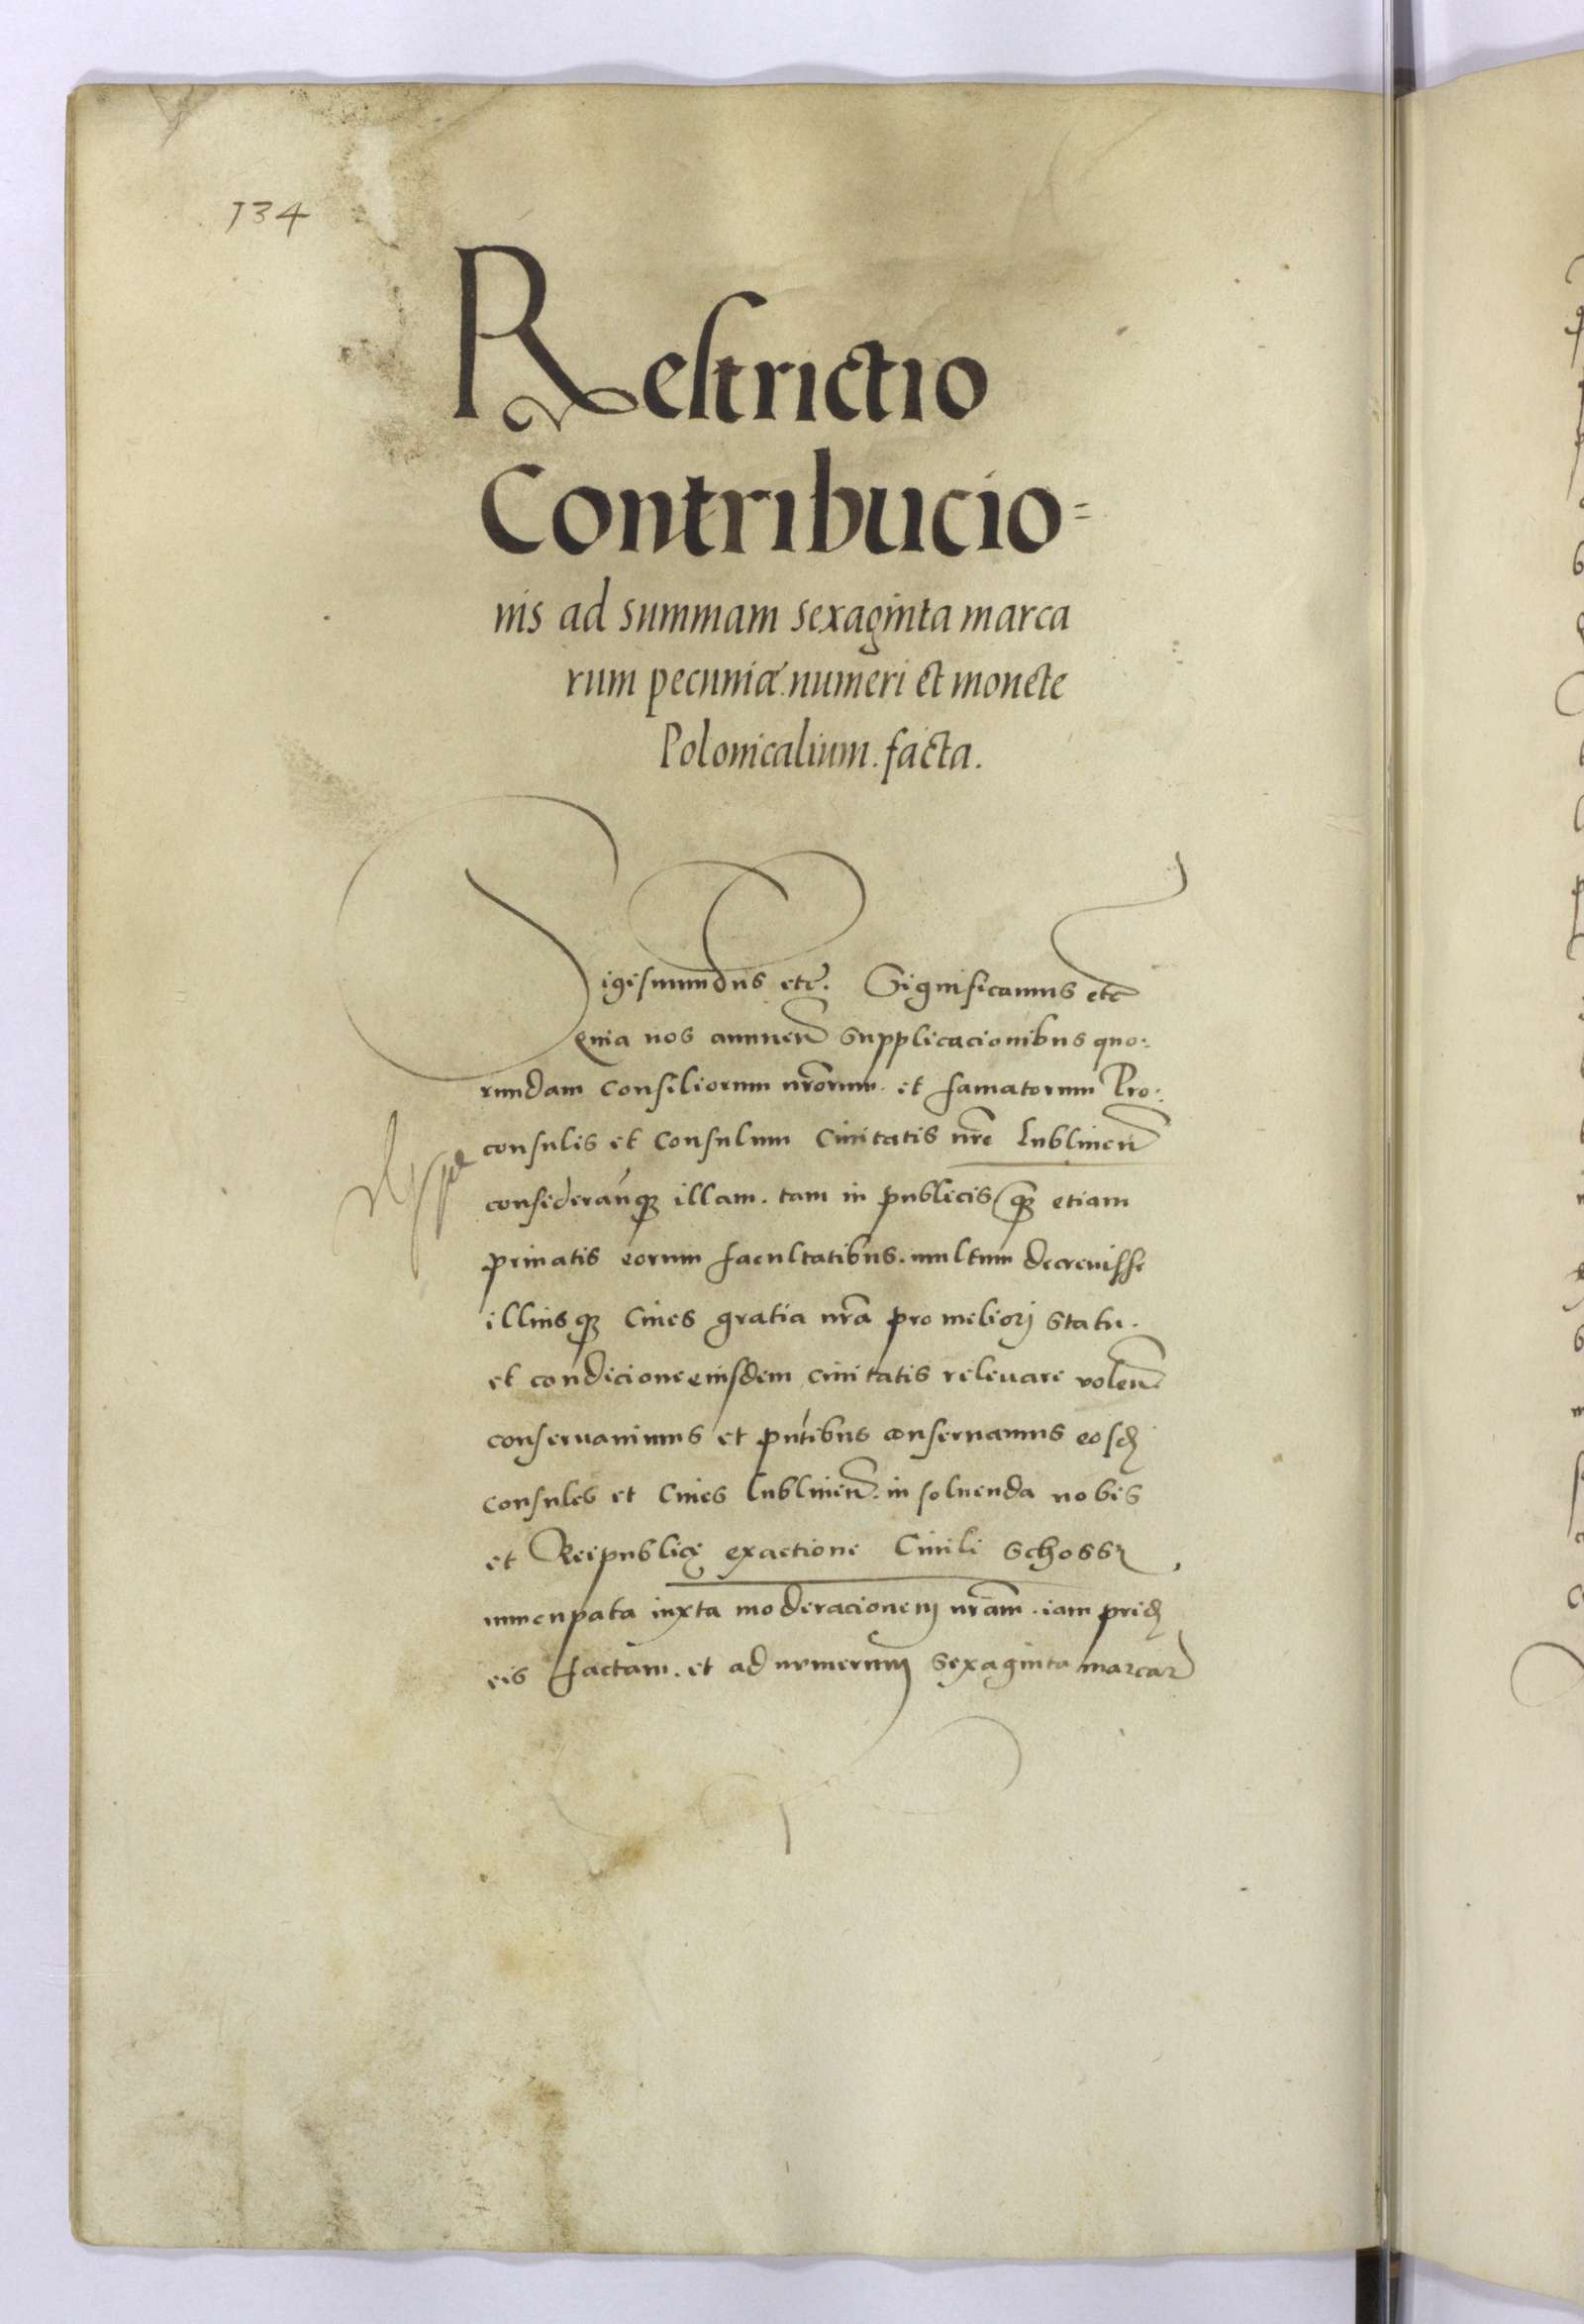 134
Restrictio
Contribucio=
nis ad summam sexaginta marca
rum pecuniæ numeri et monete
Polonicalium. facta.
Sigismundus etc̃. Significamus etc̃
quia nos annuen̄ supplicacionibus quo:
rundam consiliorum nr̄orum. et famatorum Pro:
consulis et Consulum Ciuitatis nr̄e Lublinen̄
consideran̄qꝫ illam. tam in publicis qꝫ etiam
priuatis eorum facultatibus. multum decreuisse
illiusqꝫ Ciues gratia nr̄a pro meliorj statu.
et condicione eiusdem ciuitatis releuare volen̄
conseruauimus et pn̄tibus conseruamus eosd
consules et Ciues Lublinen̄. in soluenda nobis
et Reipublicę exactione Ciuili schoss
nuncupata iuxta moderacionem nr̄am. iam prid
eis factam. et ad numerum sexaginta marcar